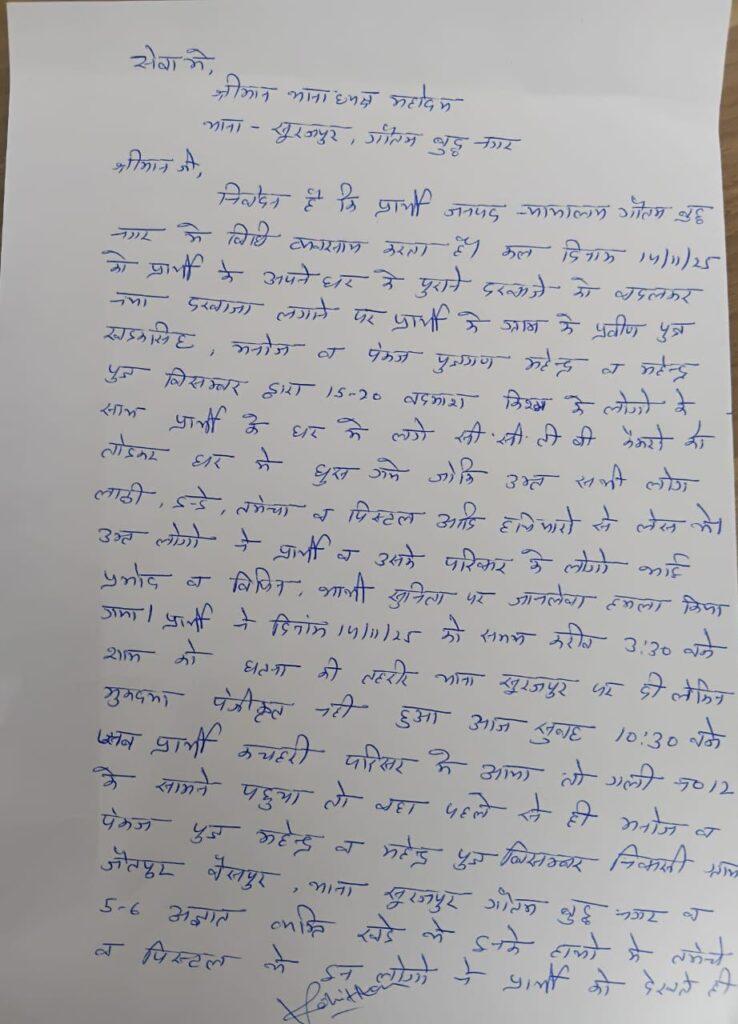 सेवा में,
श्रीमान थानाध्यक्ष महोदय
थाना - सूरजपुर, गौतम बुद्ध नगर
श्रीमान जी,
निवेदन है कि प्रार्थी जनपद न्यायालय गौतम बुद्ध
नगर में विधि व्यवसाय करता है। कल दिनांक 14/11/25
को प्रार्थी के अपने घर के पुराने दरवाजे को बदलकर
नया दरवाजा लगाने पर प्रार्थी के ग्राम के प्रवीण पुत्र
खडकसिंह, मनोज व पंकज पुत्रगण महेन्द्र व महेन्द्र
पुत्र बिसम्बर द्वारा 15-20 बदमाश किस्म के लोगो के
साथ प्रार्थी के घर में लगे सी.सी.टी वी कैमरो को
तोडकर घर में घुस गये जोकि उक्त सभी लोग
लाठी, डन्डे, तमंचा व पिस्टल आदि हथियारो से लेस थे।
उक्त लोगो ने प्रार्थी व उसके परिवार के लोगो भाई
प्रमोद व विपिन, भाभी सुनिता पर जानलेवा हमला किया
गया। प्रार्थी ने दिनांक 14/11/25 को समय करीब 3:30 बजे
शाम को घटना की तहरीर थाना सूरजपुर पर दी लेकिन
मुकदमा पंजीकृत नही हुआ आज सुबह 10:30 बजे
जब प्रार्थी कचहरी परिसर में आया तो गली न० 12
के सामने पहुचा तो वहा पहले से ही मनोज व
पंकज पुत्र महेन्द्र व महेन्द्र पुत्र बिसम्बर निवासी ग्राम
जैतपुर वैसपुर, थाना सूरजपुर गौतम बुद्ध नगर व
5-6 अज्ञात व्यक्ति खडे थे इनके हाथो में तमंचे
व पिस्टल थे इन लोगो ने प्रार्थी को देखते ही